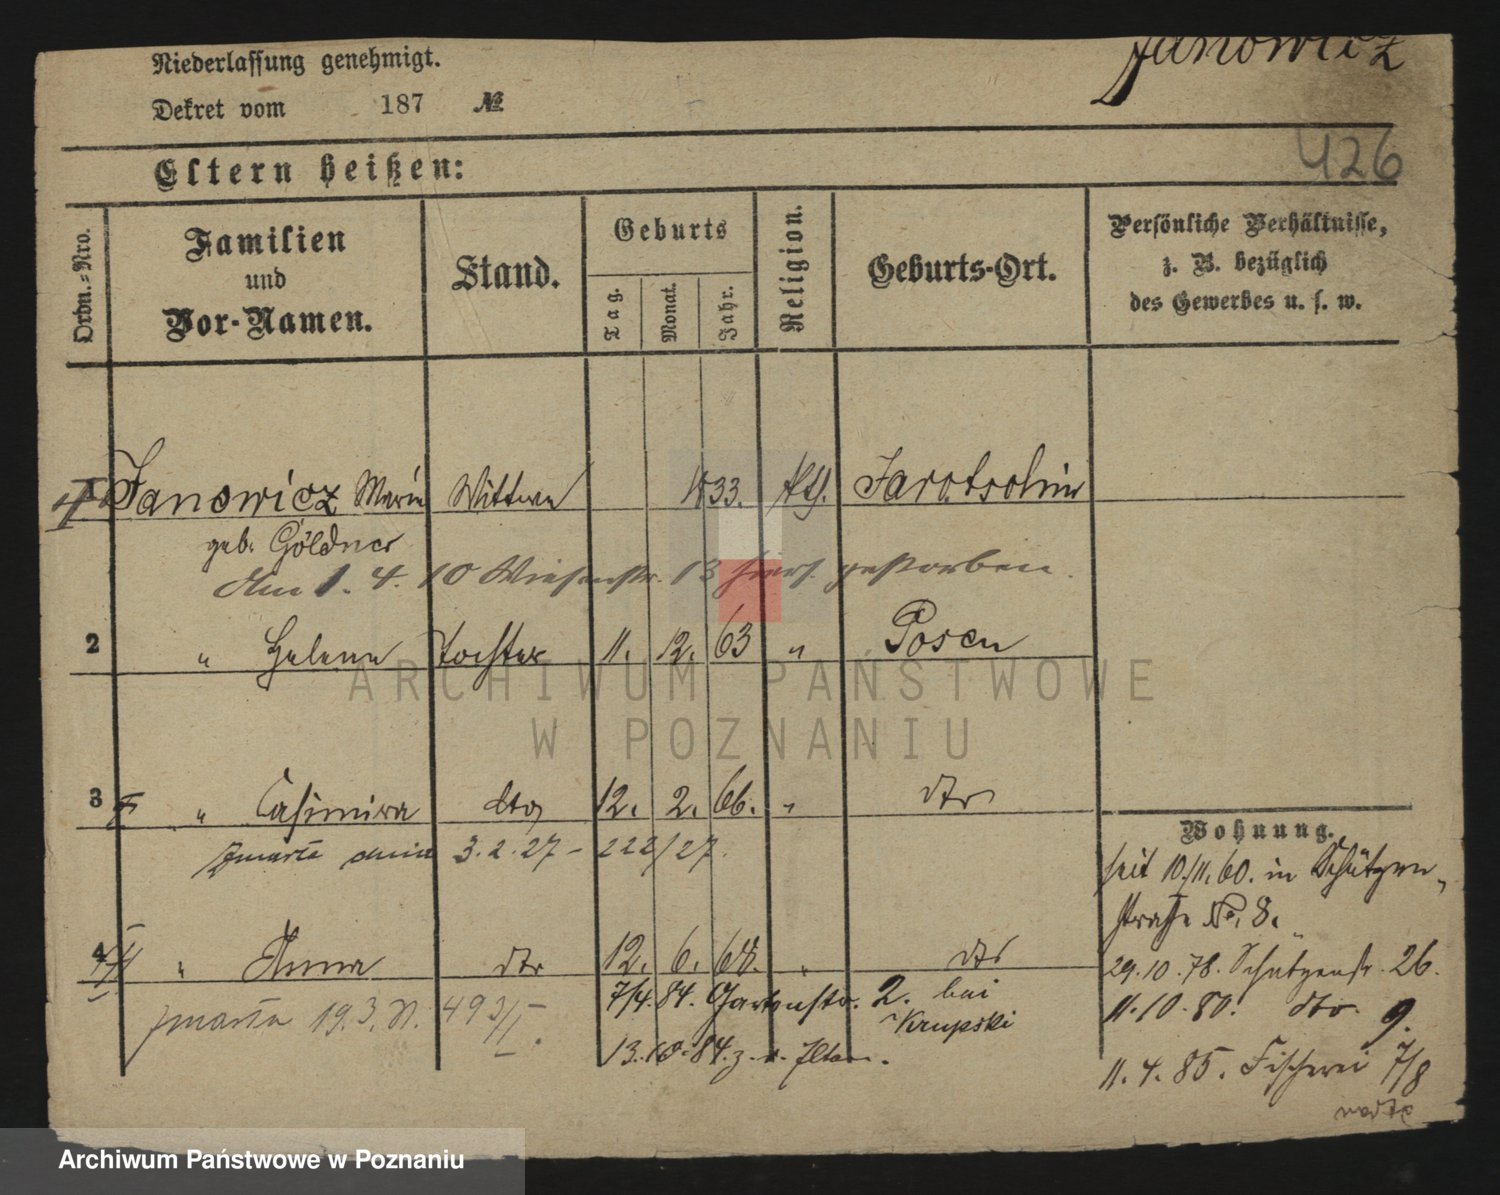 Janowicz
Niederlassung genehmigt.
Dekret vom 187 №
426
Eltern heißen:
Ordn.-Nro.
Familien und Vor-Namen.
Stand.
Geburts
Tag.
Monat.
Jahr.
Religion.
Geburts-Ort.
Persönliche Verhältnisse, z. B. bezüglich des Gewerbes u. s. w.
Janowicz Marie Wittwe 1833. kth. Jarotschin
geb. Göldner
Am 1. 4. 10 Wiesenstr. 13 hiers. gestorben.
2 " Helene Tochter 11. 12. 63 " Posen
3 " Casimira dto 12. 2. 66. " dto
zmarła 3.2.27 - 222/27.
4 " Anna dto 12. 6. 68. " dto
zmarła 19.3. 493/II.
7/4. 84. Gartenstr. 2. bei Krupski
13.10.84. z. d. Eltern.
Wohnung.
seit 10/11. 60. in Schützen-
straße No. 8.
29.10.78. Schützenstr. 26.
11.10.80. dto. 9.
11.4.85. Fischerei 7/8
ARCHIWUM PAŃSTWOWE
W POZNANIU
Archiwum Państwowe w Poznaniu